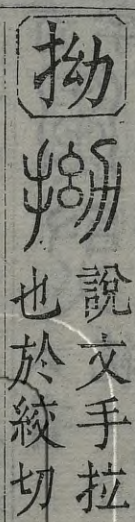 拗
𢫓
說文手拉
也於絞切